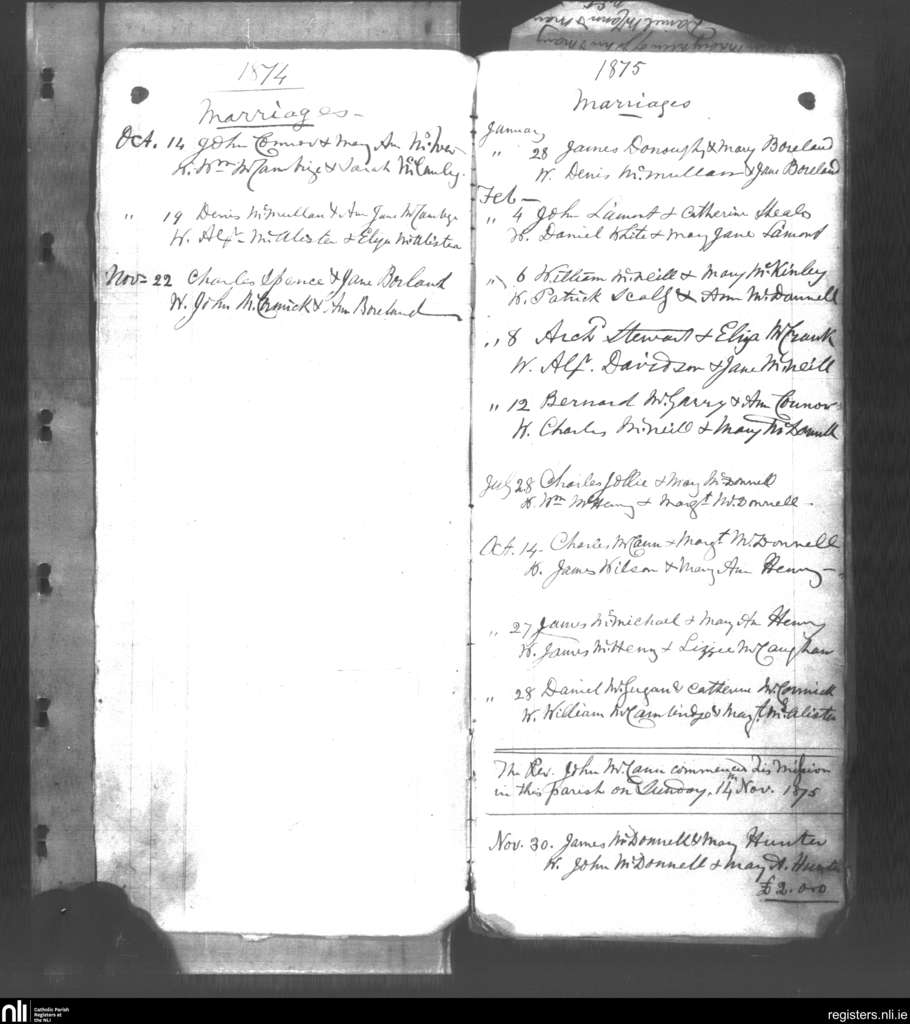 1874
Marriages -
Oct. 14 John Connor & Mary Ann
W. Wm McCambige & Sarah McCauley.
" 19 Denis McMullan & Ann Jane McCambge
W. Alexr McAlister & Eliza McAlister
Nov- 22 Charles Spence & Jane Borland
W. John McCormick & Ann Boreland
1875
Marriages
January
" 28 James Donoughy & Mary Boreland
W. Denis McMullan & Jane Boreland
Feb -
" 4 John Lamont & Catherine
W. Daniel White & Mary Jane Lamont
" 6 William McNeill & Mary McKinley
W. Patrick Scally & Ann McDonnell
" 8 Archd Stewart & Eliza McCrank
W. Alexr. Davidson & Jane McNeill
" 12 Bernard McGarry & Ann Connor
W. Charles McNeill & Mary McDonnell
July 28 Charles Jollie & Mary McDonnell
W. Wm McHenry & Margt McDonnell.
Oct. 14. Charles McCann & Margt McDonnell
W. James Wilson & Mary Ann Henry -
" 27 James McMichael & Mary An Henry
W. James McHenry & Lizzie McCaughan
" 28 Daniel McGugan & Catherine McCormick
W. William McCambridge & Margt McAlister
The Rev. John McCann commenced his Mission
in this parish on Sunday, 14th Nov. 1875
Nov. 30. James McDonnell & Mary Hunter
W. John McDonnell & Mary A. Hunter
£2.0.0
nli
Catholic Parish
Registers at
the NLI
registers.nli.ie